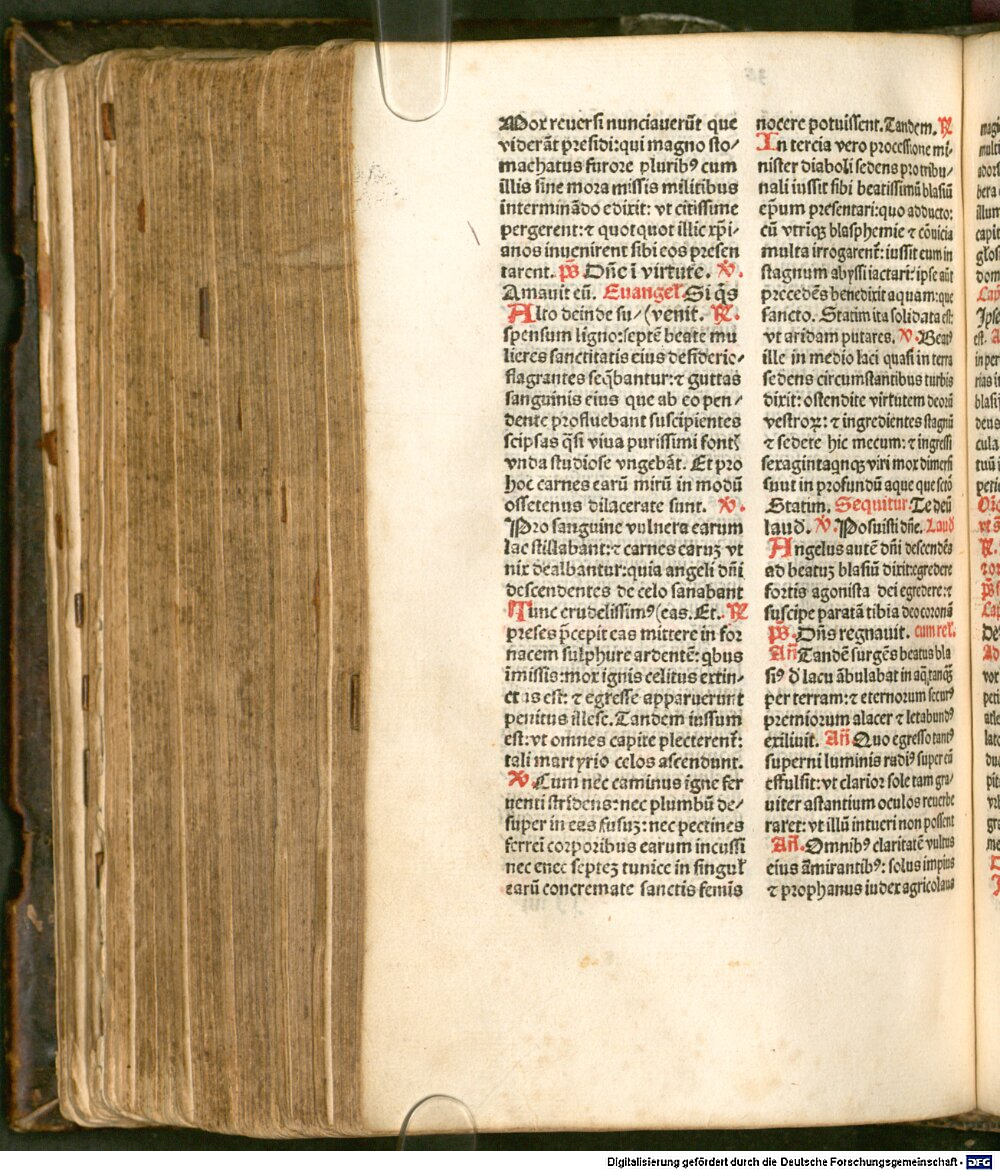 Mox reuersi nunciauerūt que
viderāt presidi:qui magno sto/
machatus furore pluribꝰ cum
illis sine mora missis militibus
interminādo edixit: vt citissime
pergerent:⁊ quotquot illic xp̄i-
anos inuenirent sibi eos presen
tarent. p̄s Dñe ī virtute. ℣.
Amauit eū. Euangeł. Si q̄s
Alto deinde su/ (venit. ℟.
spensum ligno:septē beate mu
lieres sanctitatis eius desiderio/
flagrantes seq̄bantur:⁊ guttas
sanguinis eius que ab eo pen/
dente profluebant suscipientes
seipsas q̄si viua purissimi fontꝭ
vnda studiose vngebāt. Et pro
hoc carnes earū mirū in modū
ossetenus dilacerate sunt. ℣.
Pro sanguine vulnera earum
lac stillabant:⁊ carnes earuꝫ vt
nix dealbantur:quia angeli dñi
descendentes de celo sanabant
Tunc crudelissimꝰ (eas. Et. ℟
preses p̄cepit eas mittere in for
nacem sulphure ardentē: qbus
īmissis:mox ignis celitus extin-
ctus est: ⁊ egresse apparuerunt
penitus illese. Tandem iussum
est:vt omnes capite plecterent̄:
tali martyrio celos ascendunt.
℣. Cum nec caminus igne fer
uenti stridens:nec plumbū de/
super in eas fusuꝫ: nec pectines
ferrei corporibus earum incussi
nec enee septeꝫ tunice in singuł
earū concremate sanctis femīs
nocere potuissent. Tandem. ℟
In tercia vero processione mi-
nister diaboli sedens pro tribu/
nali iussit sibi beatissimū blasiū
ep̄um presentari:quo adducto:
cū vtriqꝫ blasphemie ⁊ cōuicia
multa irrogarent̄: iussit eum in
stagnum abyssi iactari: ipse aūt
precedēs benedixit aquam:que
sancto. Statim ita solidata est:
vt aridam putares. ℣. Beatꝰ
ille in medio laci quasi in terra
sedens circumstantibus turbis
dixit: ostendite virtutem deorū
vestroꝝ: ⁊ ingredientes stagnū
⁊ sedete hic mecum: ⁊ ingressi
sexagintaqnqꝫ viri mox dimersi
sunt in profundū aque que scō
Statim. Sequitur. Te deū
laud. ℣. Posuisti dñe. Laud
Angelus autē dñi descendēs
ad beatuꝫ blasiū dixit:egredere
fortis agonista dei egredere:⁊
suscipe paratā tibi a deo coronā
p̄s. Dñs regnauit. cum rel.
Añ Tandē surgēs beatus bla
siꝰ d̄ lacu ābulabat in aq̄ tanqꝫ
per terram:⁊ eternorum securꝰ
premiorum alacer ⁊ letabundꝰ
exiliuit. Añ Quo egresso tantꝰ
superni luminis radiꝰ super eū
effulsit:vt clarior sole tam gra/
uiter astantium oculos reuerbe
raret:vt illū intueri non possent
Añ. Omnibꝰ claritatē vultus
eius āmirantibꝰ: solus impius
⁊ prophanus iudex agricolaus
Digitalisierung gefördert durch die Deutsche Forschungsgemeinschaft - DFG